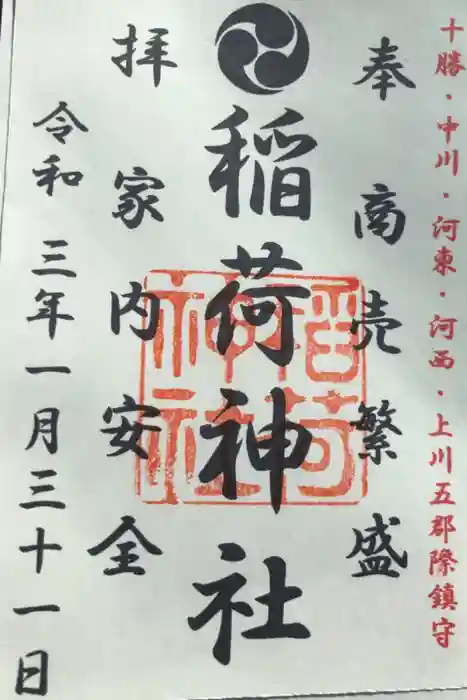 十勝・中川・河東・河西・上川五郡際鎮守
奉商売繁盛
稲荷神社
稲荷神社
拝家内安全
令和三年一月三十一日